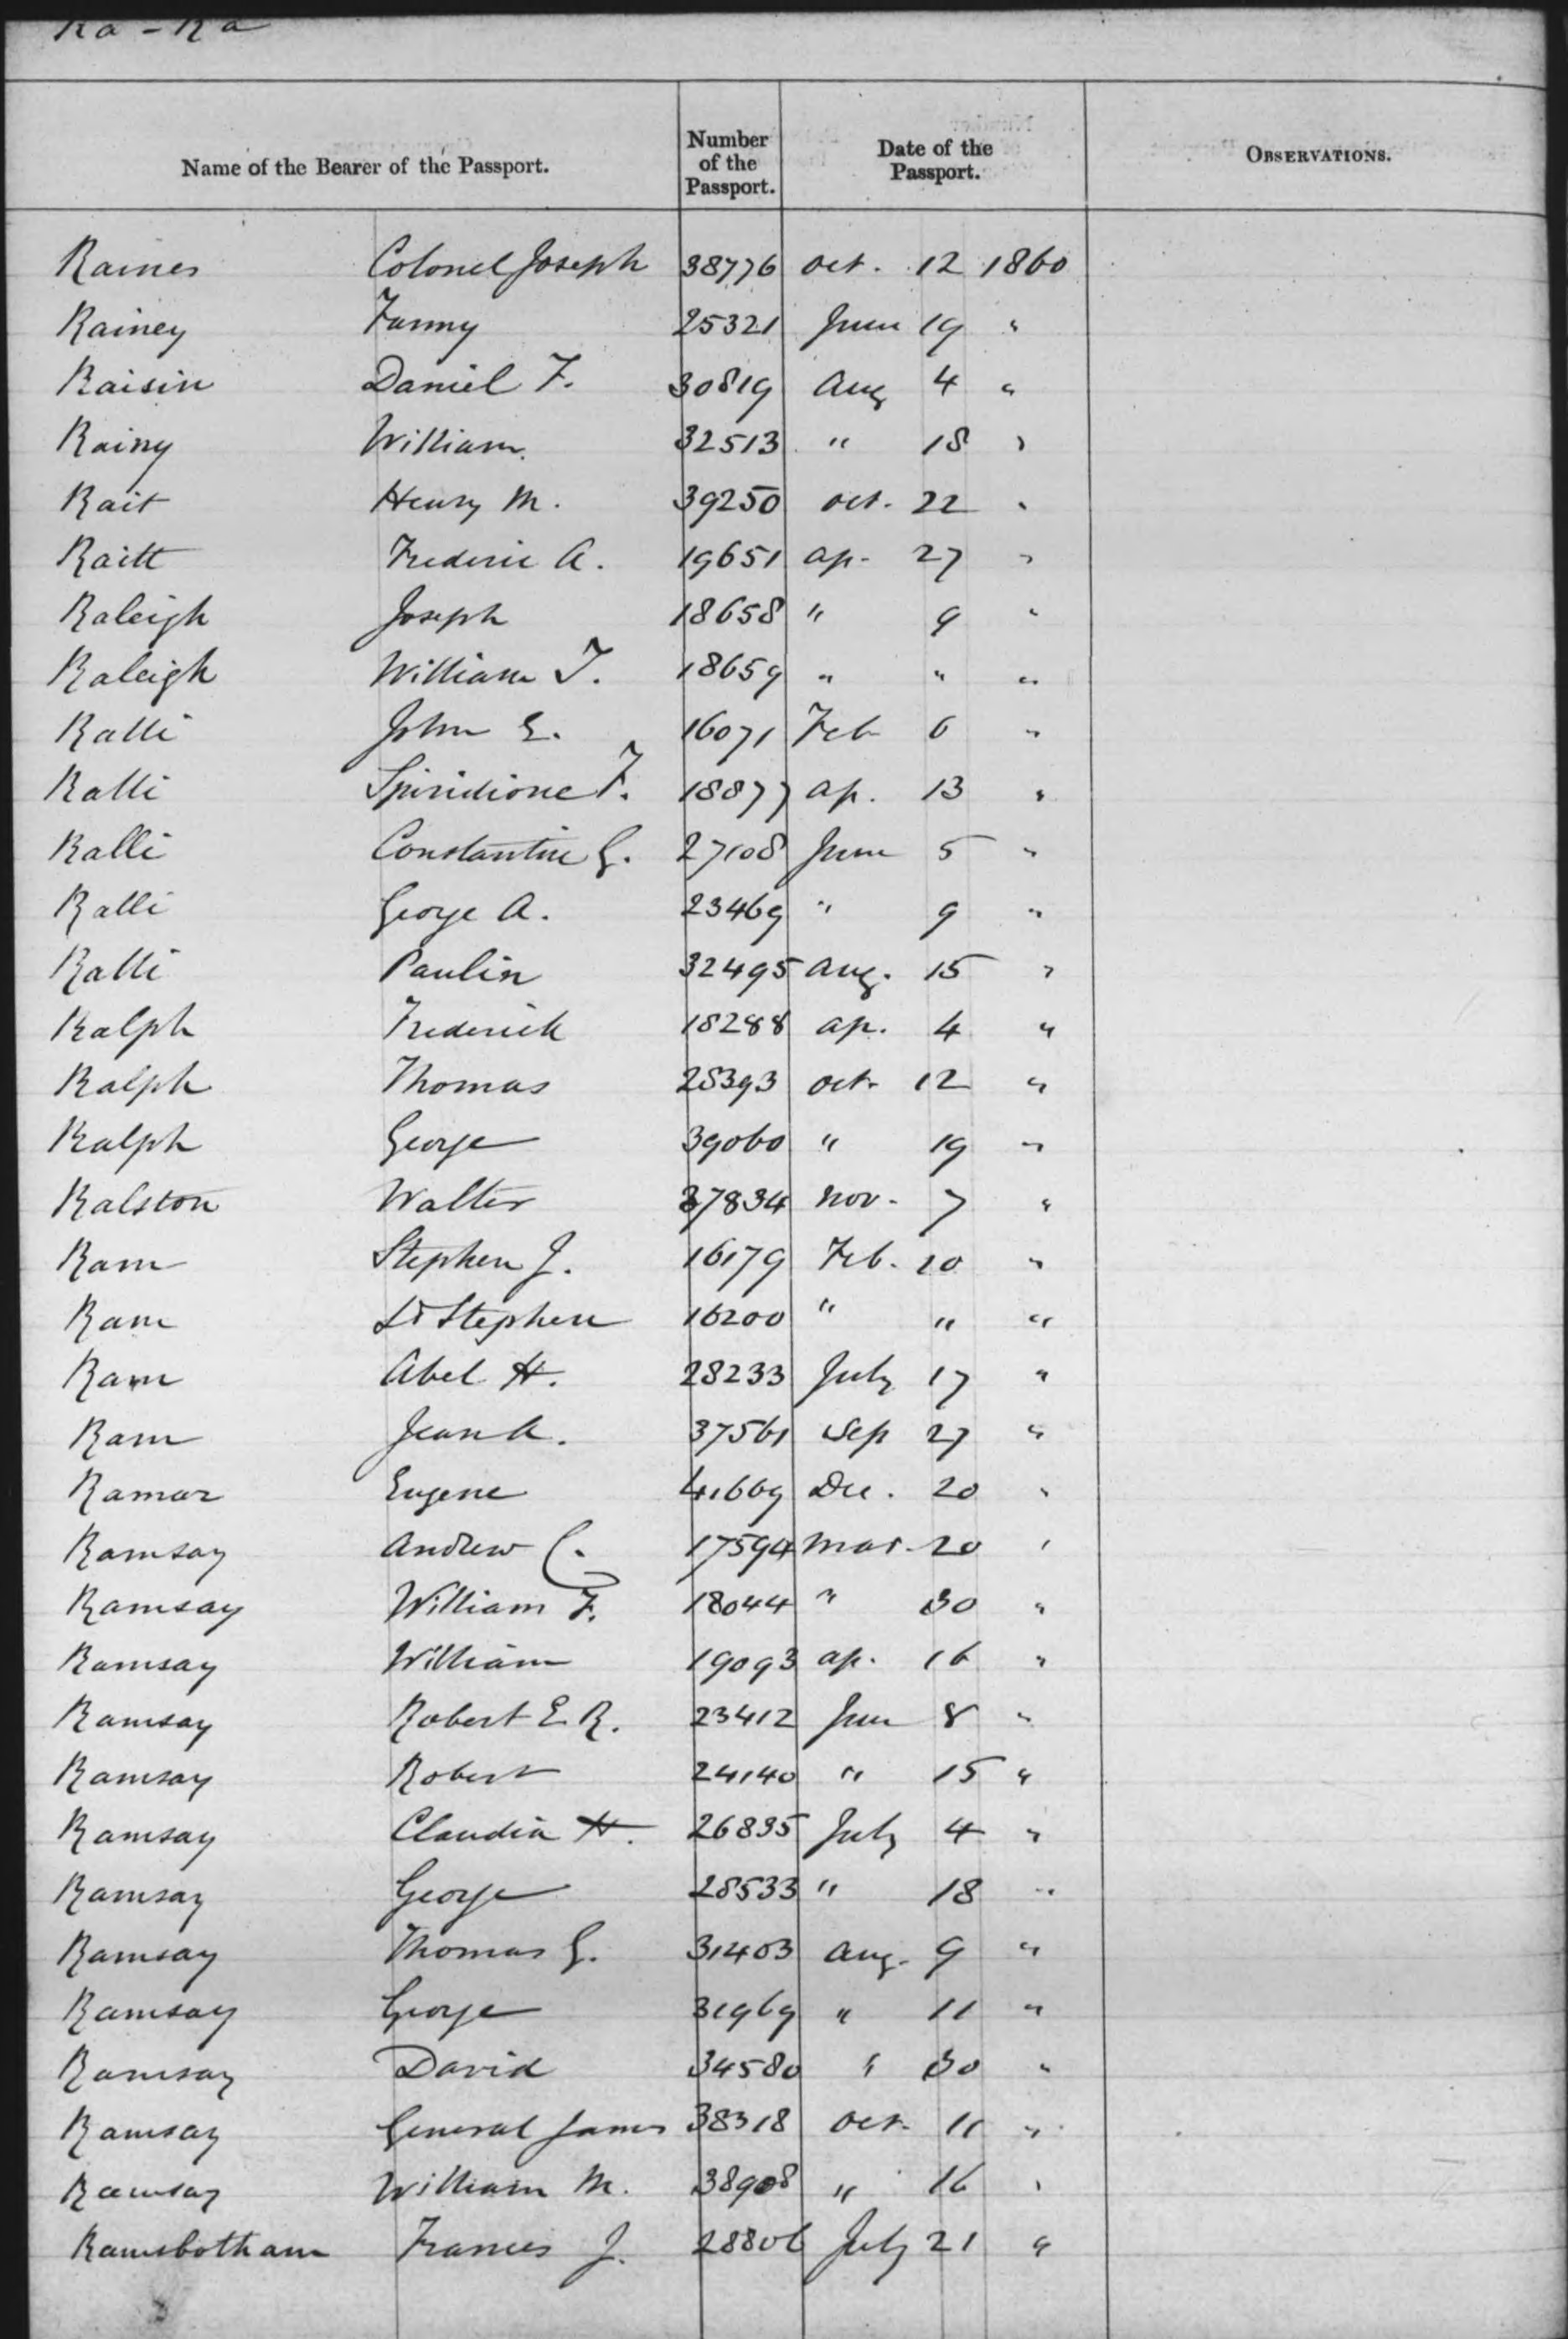 Ra - Ra
Name of the Bearer of the Passport. Number of the Passport. Date of the Passport. OBSERVATIONS.
Raines Colonel Joseph 38776 Oct. 12 1860
Rainey Fanny 25321 June 19 "
Raisin Daniel F. 30819 Aug 4 "
Rainy William 32513 " 18 "
Rait Henry M. 39250 Oct. 22 "
Raitt Frederic A. 19651 Ap. 27 "
Raleigh Joseph 18658 " 9 "
Raleigh William T. 18659 " " "
Ralli John E. 16071 Feb 6 "
Ralli Spiridione F. 18877 Ap. 13 "
Ralli Constantine G. 27108 June 5 "
Ralli George A. 23469 " 9 "
Ralli Paulin 32495 Aug. 15 "
Ralph Frederick 18288 Ap. 4 "
Ralph Thomas 28393 Oct. 12 "
Ralph George 39060 " 19 "
Ralston Walter 37834 Nov. 7 "
Ram Stephen J. 16179 Feb. 10 "
Ram Dr Stephen 16200 " " "
Ram Abel H. 28233 July 17 "
Ram Jean A. 37561 Sep 27 "
Ramar Eugene 41669 Dec. 20 "
Ramsay Andrew C. 17594 Mar. 20 "
Ramsay William F. 18044 " 30 "
Ramsay William 19093 Ap. 16 "
Ramsay Robert E R. 23412 June 8 "
Ramsay Robert 24140 " 15 "
Ramsay Claudia H. 26835 July 4 "
Ramsay George 28533 " 18 "
Ramsay Thomas G. 31403 Aug. 9 "
Ramsay George 31969 " 11 "
Ramsay David 34580 " 30 "
Ramsay General James 38318 Oct. 11 "
Ramsay William M. 38908 " 16 "
Ramsbotham Frances J. 28806 July 21 "